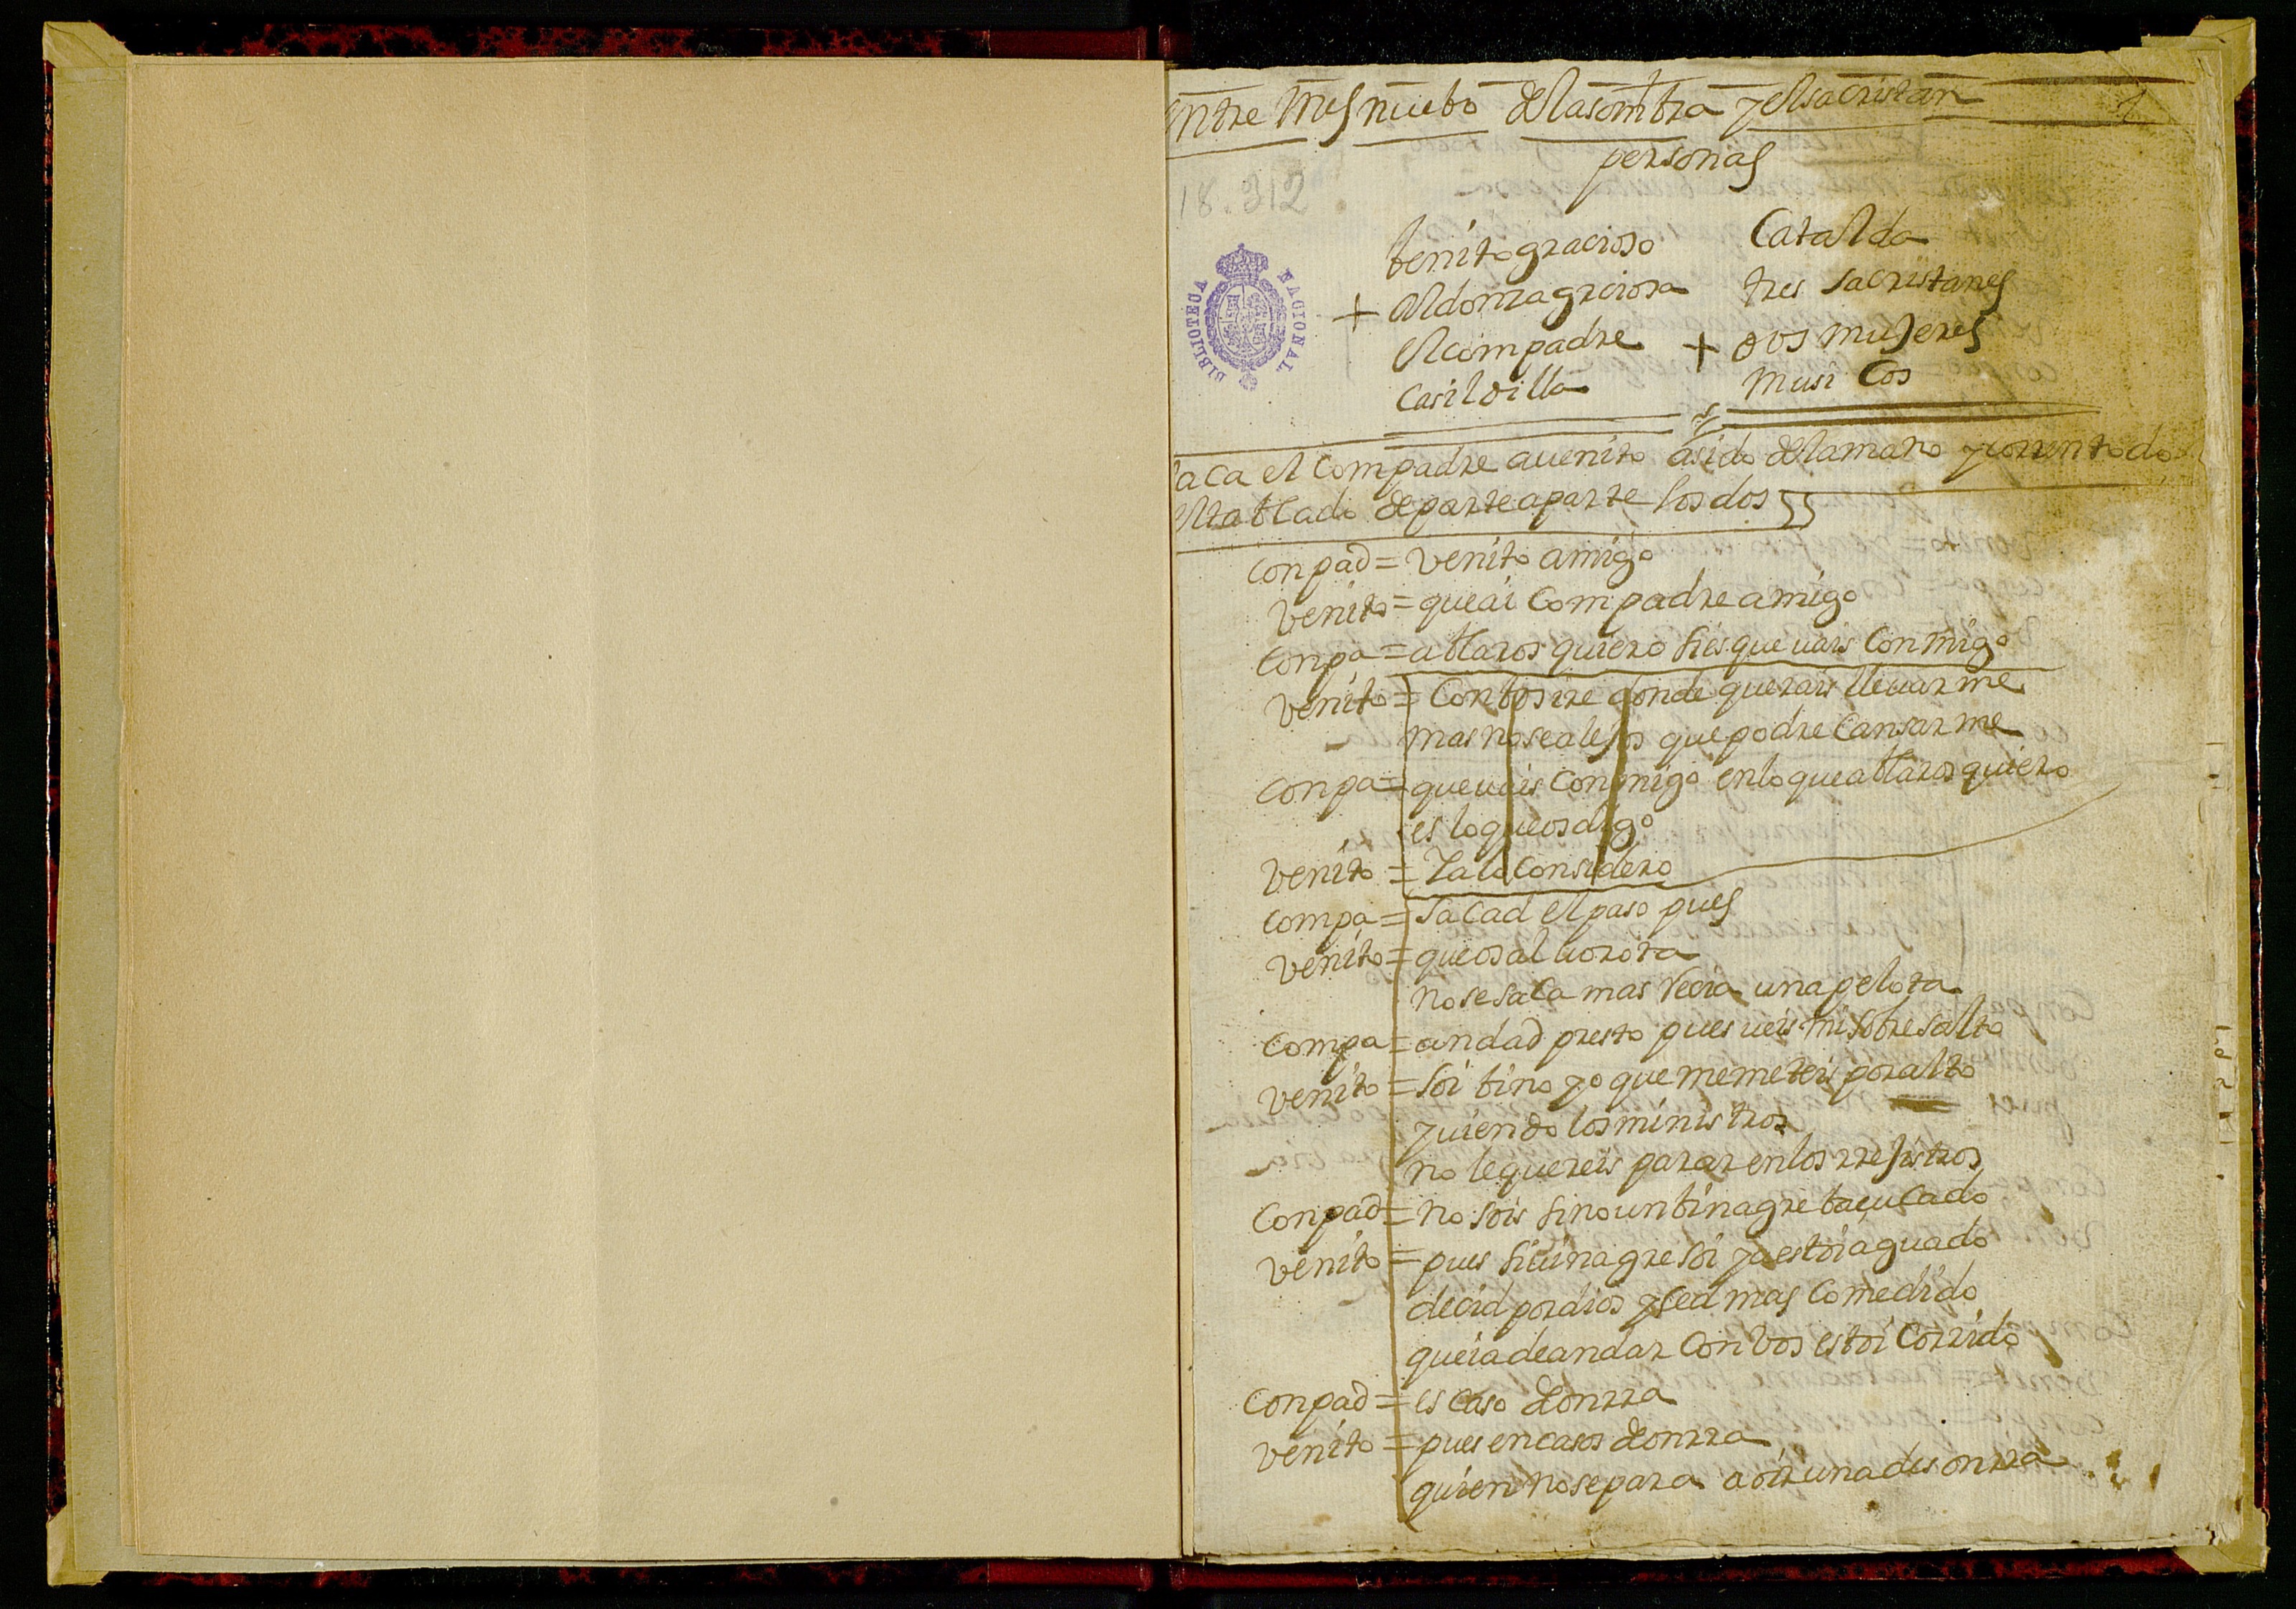 entremes nuebo de la sombra y el sacristan
1
personas
18.312
BIBLIOTECA NACIONAL
benito gracioso
Catalda
+ Aldonza graciosa
tres sacristanes
el compadre
+ dos mujeres
Casildilla
musicos
saca el compadre a uenito asido de la mano
el tablado de parte a parte los dos
Conpad = Venito amigo
Venito = que ai Compadre amigo
Conpa = ablaros quiero si es que uais Conmigo
Venito = Con bos ire donde querais lleuarme
mas no sea lejos que podre Cansarme
Conpa = que uais Conmigo en lo que ablaros quiero
es lo que os digo
Venito = Ya lo Considero
Compa = Sacad el paso pues
Venito = que os alborota
no se saca mas recia una pelota
Compa = andad presto pues ueis mi sobresalto
Venito = soi bino yo que me meteis por alto
y uiendo los ministros
no le quereis parar en los rrejistros
Conpad = no sois sino un binagre
Venito = pues si uinagre soi ya estoi aguado
decid por dios y sed mas Comedido
que ia de andar Con bos estoi Corrido
Conpad = es caso de onrra
Venito = pues en casos de onrra
quien no se para a oir una desonrra